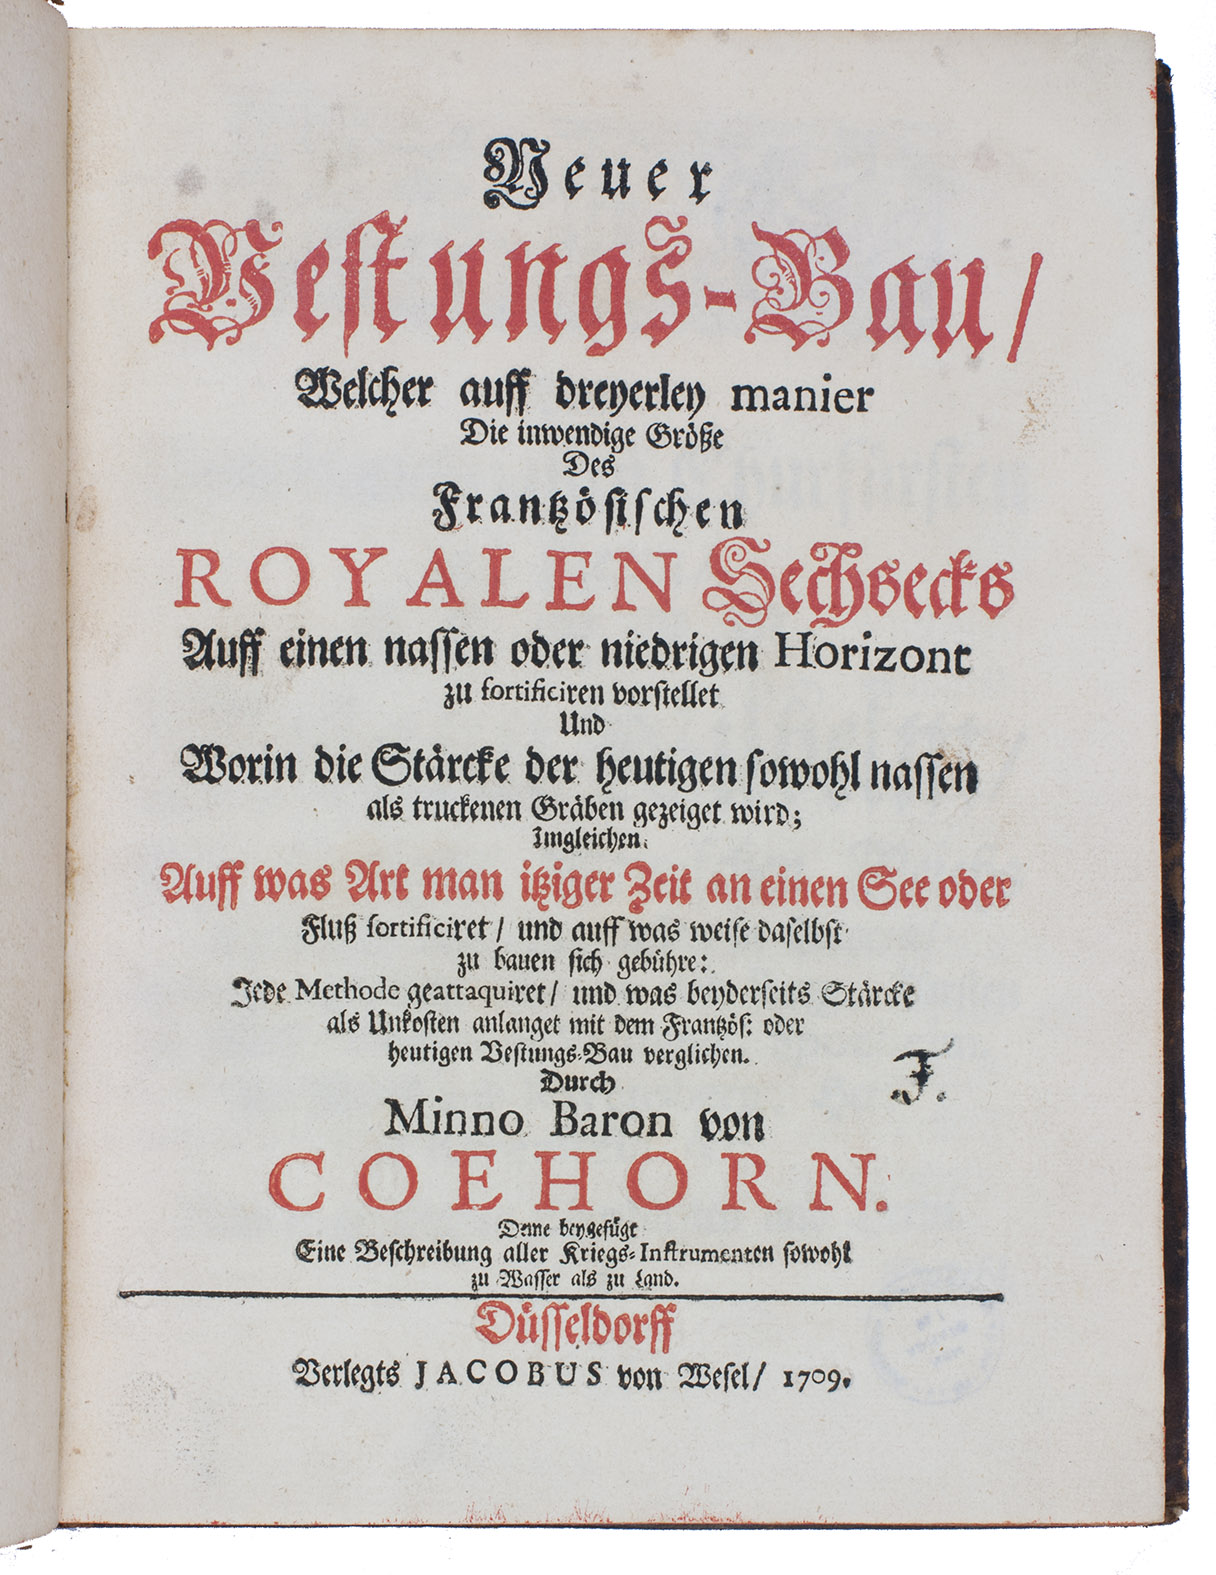 Neuer
Vestungs-Bau/
Welcher auff dreyerley manier
Die inwendige Größe
Des
Frantzösischen
ROYALEN Sechsecks
Auff einen nassen oder niedrigen Horizont
zu fortificiren vorstellet
Und
Worin die Stärcke der heutigen sowohl nassen
als truckenen Gräben gezeiget wird;
Imgleichen.
Auff was Art man itziger Zeit an einen See oder
Fluß fortificiret/ und auff was weise daselbst
zu bauen sich gebühre:
Jede Methode geattaquiret/ und was beyderseits Stärcke
als Unkosten anlanget mit dem Frantzös: oder
heutigen Vestungs-Bau verglichen.
Durch
F.
Minno Baron von
COEHORN.
Deme beygefügt
Eine Beschreibung aller Kriegs-Instrumenten sowohl
zu Wasser als zu Land.
Düsseldorff
Verlegts JACOBUS von Wesel/ 1709.